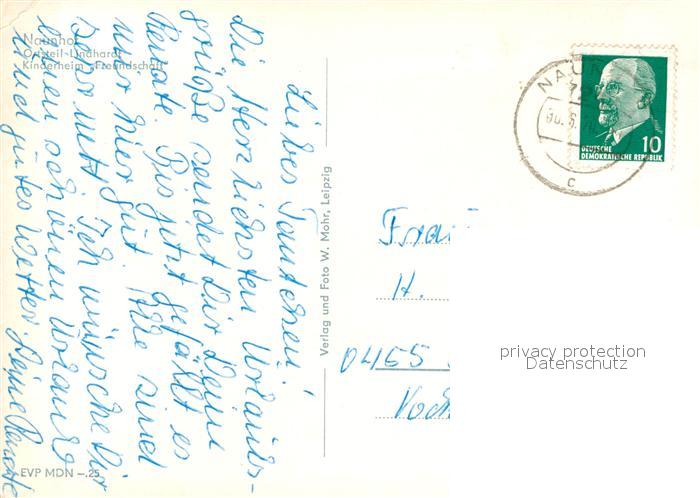 Naunhof
Ortsteil Lindhardt
Kinderheim „Freundschaft"
Liebes Tantchen!
Die Herzlichsten Urlaubs-
grüße sendet Dir Deine
Renate. Bis jetzt gefällt es
mir hier gut. Alle sind
sehr nett. Ich wünsche Dir
einen schönen Urlaub
und gutes Wetter. Deine Renate
EVP MDN –.25
Verlag und Foto W. Mohr, Leipzig
NAUN
10
DEUTSCHE
DEMOKRATISCHE REPUBLIK
c
Frau
H.
0455
privacy protection
Datenschutz